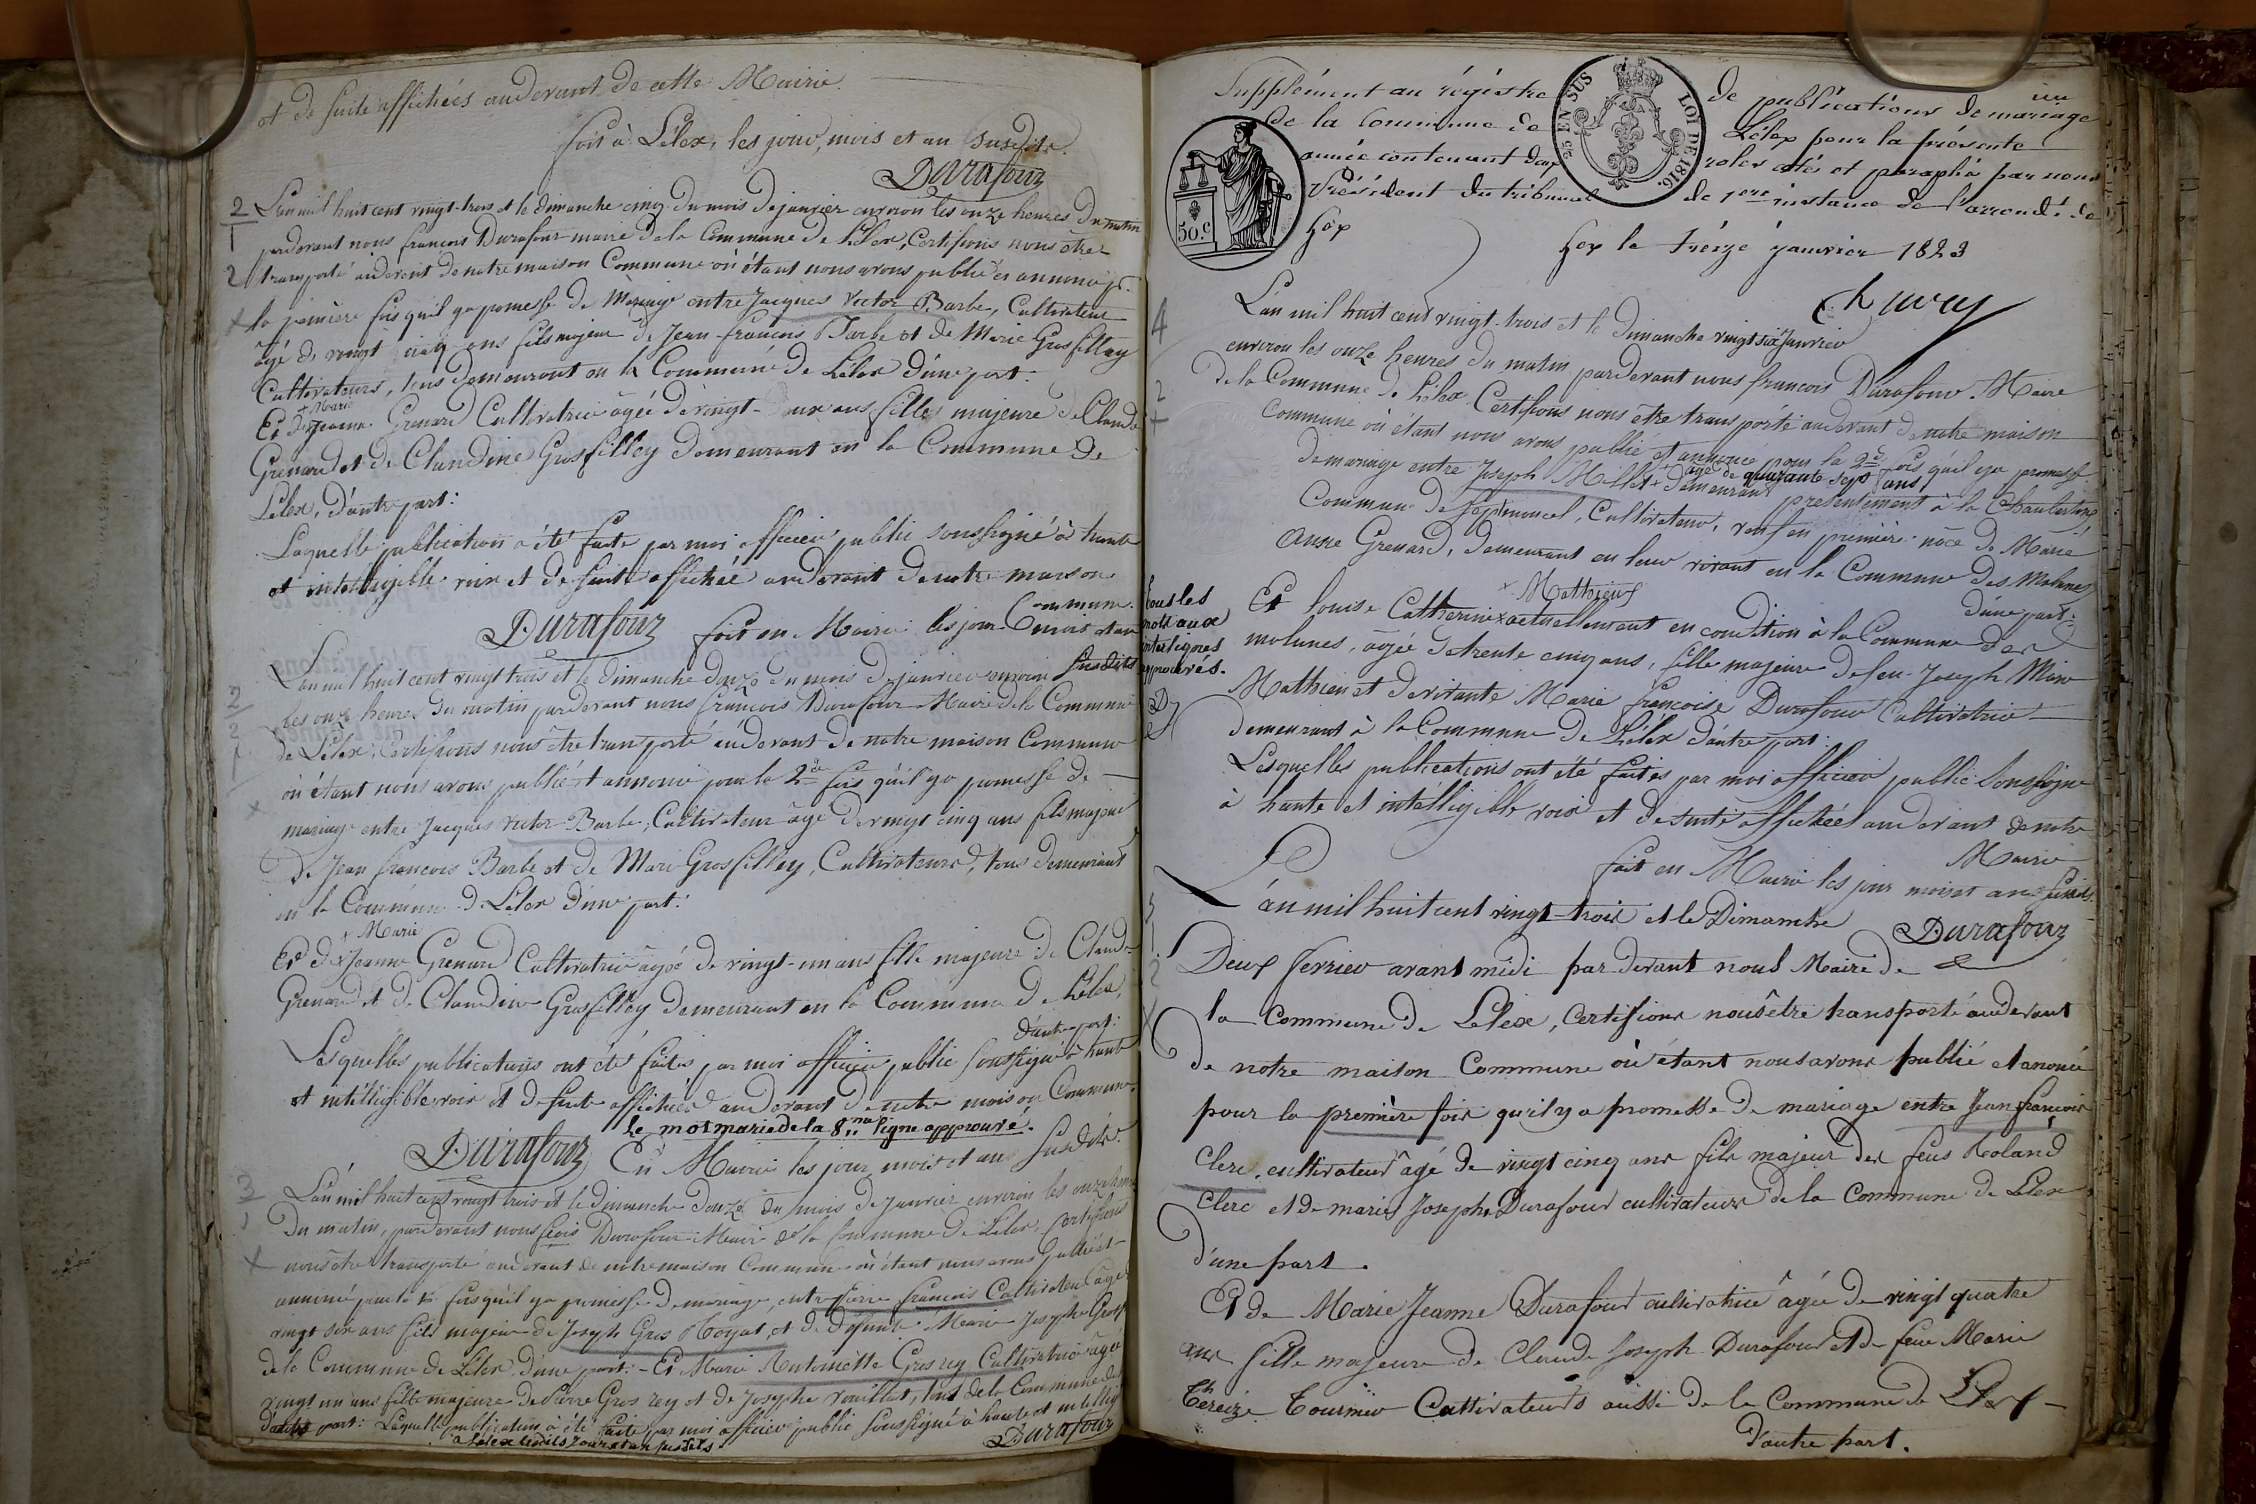 et de suite affichées audevant de cette Mairie.
fait à Lélex, les jour, mois et an susdits.
Durafour
2/1 L'an mil huit cent vingt-trois et le dimanche cinq du mois de janvier environ les onze heures du matin
pardevant nous francois Durafour maire de la Commune de Lélex, Certifions nous être
2 transporté audevant de notre maison Commune où étant nous avons publié et annoncé pr.
la première fois qu'il y a promesse de Mariage entre Jacques victor Barbe, Cultivateur
âgé de vingt cinq ans fils majeur de Jean-francois Barbe et de Marie Grosfilley
Cultivateurs, tous demeurant en la Commune de Lélex d'une part:
+ Marie
Et de Jeanne Grenard Cultivatrice âgée de vingt- un ans fille majeure de Claude
Grenard et de Claudine Grosfilley demeurant en la Commune de
Lélex, d'autre part:
Laquelle publication a été faite par moi officier public soussigné à haute
et intelligible voix et de suite affichée audevant de notre maison
Commune.
Durafour fait en Mairie les jour mois et an
susdits
L'an mil huit cent vingt trois et le dimanche douze du mois de janvier environ
2/2 les onze heures du matin pardevant nous francois Durafour Maire de la Commune
de Lélex, Certifions nous être transporté audevant de notre maison Commune
où étant nous avons publié et annoncé pour la 2de fois qu'il y a promesse de
mariage entre Jacques victor Barbe, Cultivateur âgé de vingt cinq ans fils majeur
de Jean francois Barbe et de Marie Grosfilley, Cultivateurs, tous demeurant
en la Commune de Lélex d'une part:
+ Marie
Et de Jeanne Grenard Cultivatrice âgée de vingt-un ans fille majeure de Claude
Grenard et de Claudine Grosfilley demeurant en la Commune de Lélex,
d'autre part:
Lesquelles publications ont été faites par moi officier public soussigné à haute
et intélligible voix et de suite affichées audevant de notre maison Commune.
Le mot marie de la 8me ligne approuvé.
Durafour En Mairie les jour mois et an susdits.
3/1 L'an mil huit cent vingt trois et le dimanche douze du mois de Janvier environ les onze heures
du matin, pardevant nous fcois Durafour Maire de la Commune de Lélex, Certifions
nous être transporté audevant de notre maison Commune où étant nous avons publié et
annoncé pour la fois qu'il y a promesse de mariage, entre Pierre francois Cultivateur âgé
vingt six ans fils majeur de Joseph Gros Royat, et de défunte Marie Josephe Gros
de la Commune de Lélex d'une part: - Et Marie Antoinette Grosrey Cultivatrice âgée
vingt un ans fille majeure de Pierre Gros rey et de Josephe rouillet, tous de la Commune de
d'autre part: Laquelle publication a été faite par moi officier public soussigné à haute et intellig
a Lélex lesdits jours et an susdits. Durafour
un
Supplément au régistre de publications de mariage
de la Commune de Lélex pour la présente
année contenant deux roles cotés et paraphé par nous
Président du tribunal de 1ere instance de l'arrondt. de
Gex
25 EN SUS LOI DE 1816.
50.c
Gex le treize janvier 1823
4 L'an mil huit cent vingt-trois et le dimanche vingt six Janvier
environ les onze heures du matin pardevant nous francois Durafour Maire
2 de la Commune de Lélex Certifions nous être transporté audevant de notre maison
Commune où étant nous avons publié et annoncé pour la 2de fois qu'il y a promesse
+ âgé de quarante sept ans
de mariage entre Joseph Millet + demeurant presentement à la Chaubertine
Commune de Septmoncel, Cultivateur, veuf en première noce de Marie
Ausie Grenard, demeurant en leur vivant en la Commune des Molunes
d'une part:
+ Mathieux
Et louise Catherine + actuellement en condition à la Commune des
molunes, agée de trente cinq ans, fille majeure de feu Joseph Marie
Mathieu et de vivante Marie francoise Durafour Cultivatrice
demeurant à la Commune de Lélex d'autre part:
tous les
mots aux
interlignes
approuvés.
D
Lesquelles publications ont été faites par moi officier public soussigné
à haute et intélligible voix et de suite affichées audevant de notre
Mairie
fait en Mairie les jour mois et an susdits.
Durafour
5 L'an mil huit cent vingt-trois et le Dimanche
1 Deux ferrier avant midi par devant nous Maire de
2 la Commune de Lélex, Certifions nous être transporté audevant
de notre maison Commune où étant nous avons publié et anoncé
pour la première fois qu'il y a promesse de mariage entre Jean francois
Clerc cultivateur âgé de vingt cinq ans fils majeur des feus Roland
Clerc et de marie Josephe Durafour cultivateurs de la Commune de Lélex
d'une part.
Et de Marie Jeanne Durafour cultivatrice âgée de vingt quatre
ans fille majeure de Claude Joseph Durafour et de feue Marie
Théreize Tournier Cultivateurs aussi de la Commune de Lélex -
d'autre part.